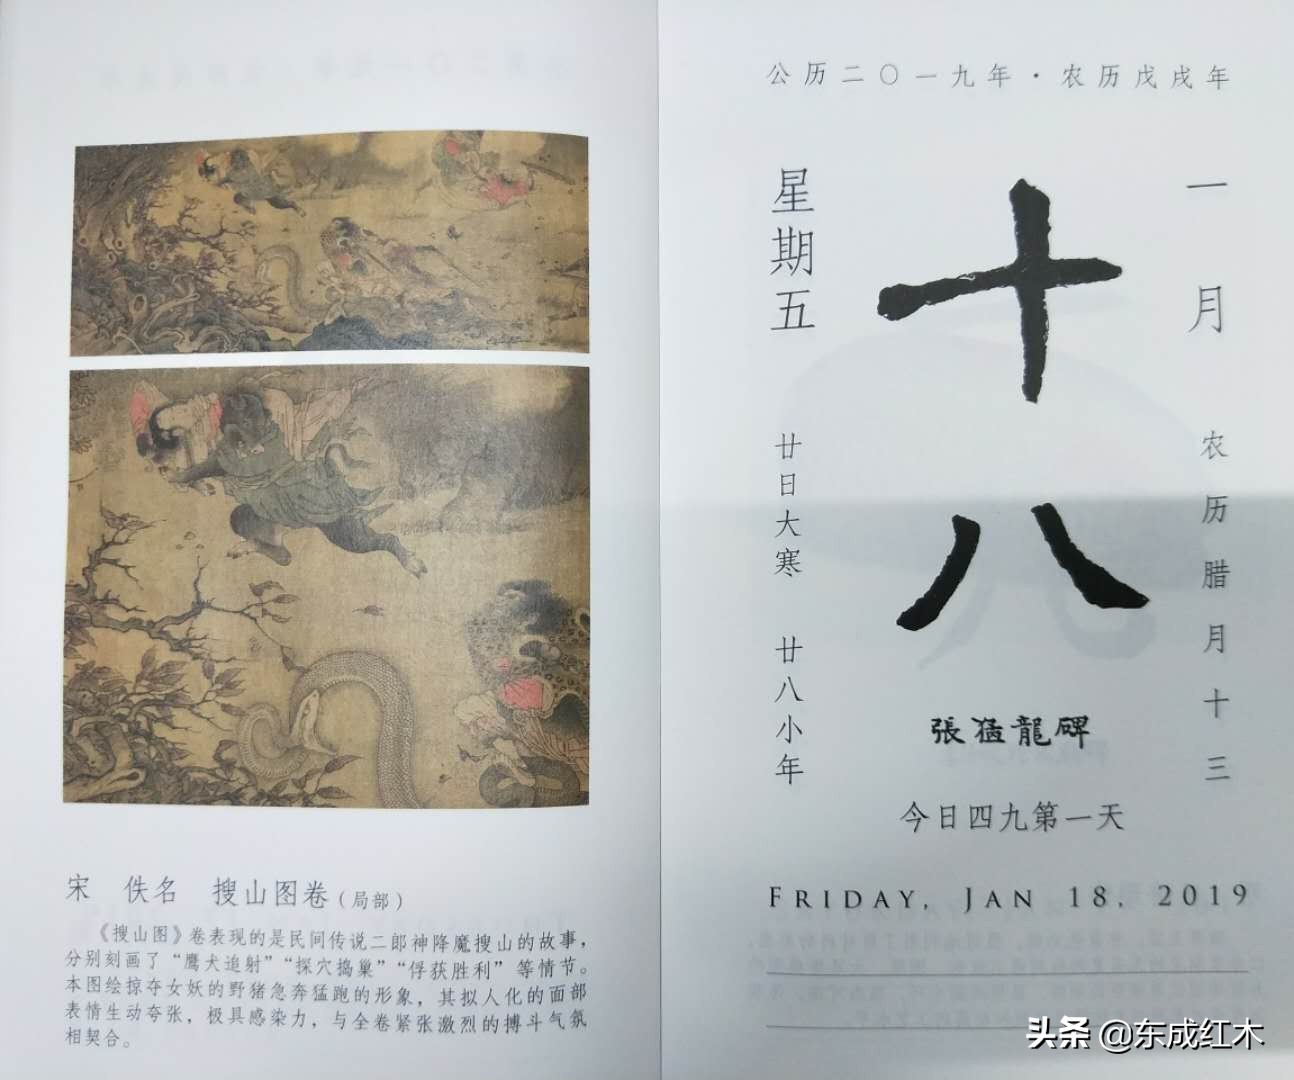 宋 佚名 搜山图卷（局部）
《搜山图》卷表现的是民间传说二郎神降魔搜山的故事，
分别刻画了“鹰犬追射”“探穴捣巢”“俘获胜利”等情节。
本图绘掠夺女妖的野猪急奔猛跑的形象，其拟人化的面部
表情生动夸张，极具感染力，与全卷紧张激烈的搏斗气氛
相契合。
公历二〇一九年·农历戊戌年
一月
农历腊月十三
十八
星期五
廿日大寒 廿八小年
張猛龍碑
今日四九第一天
FRIDAY, JAN 18, 2019
头条 @东成红木